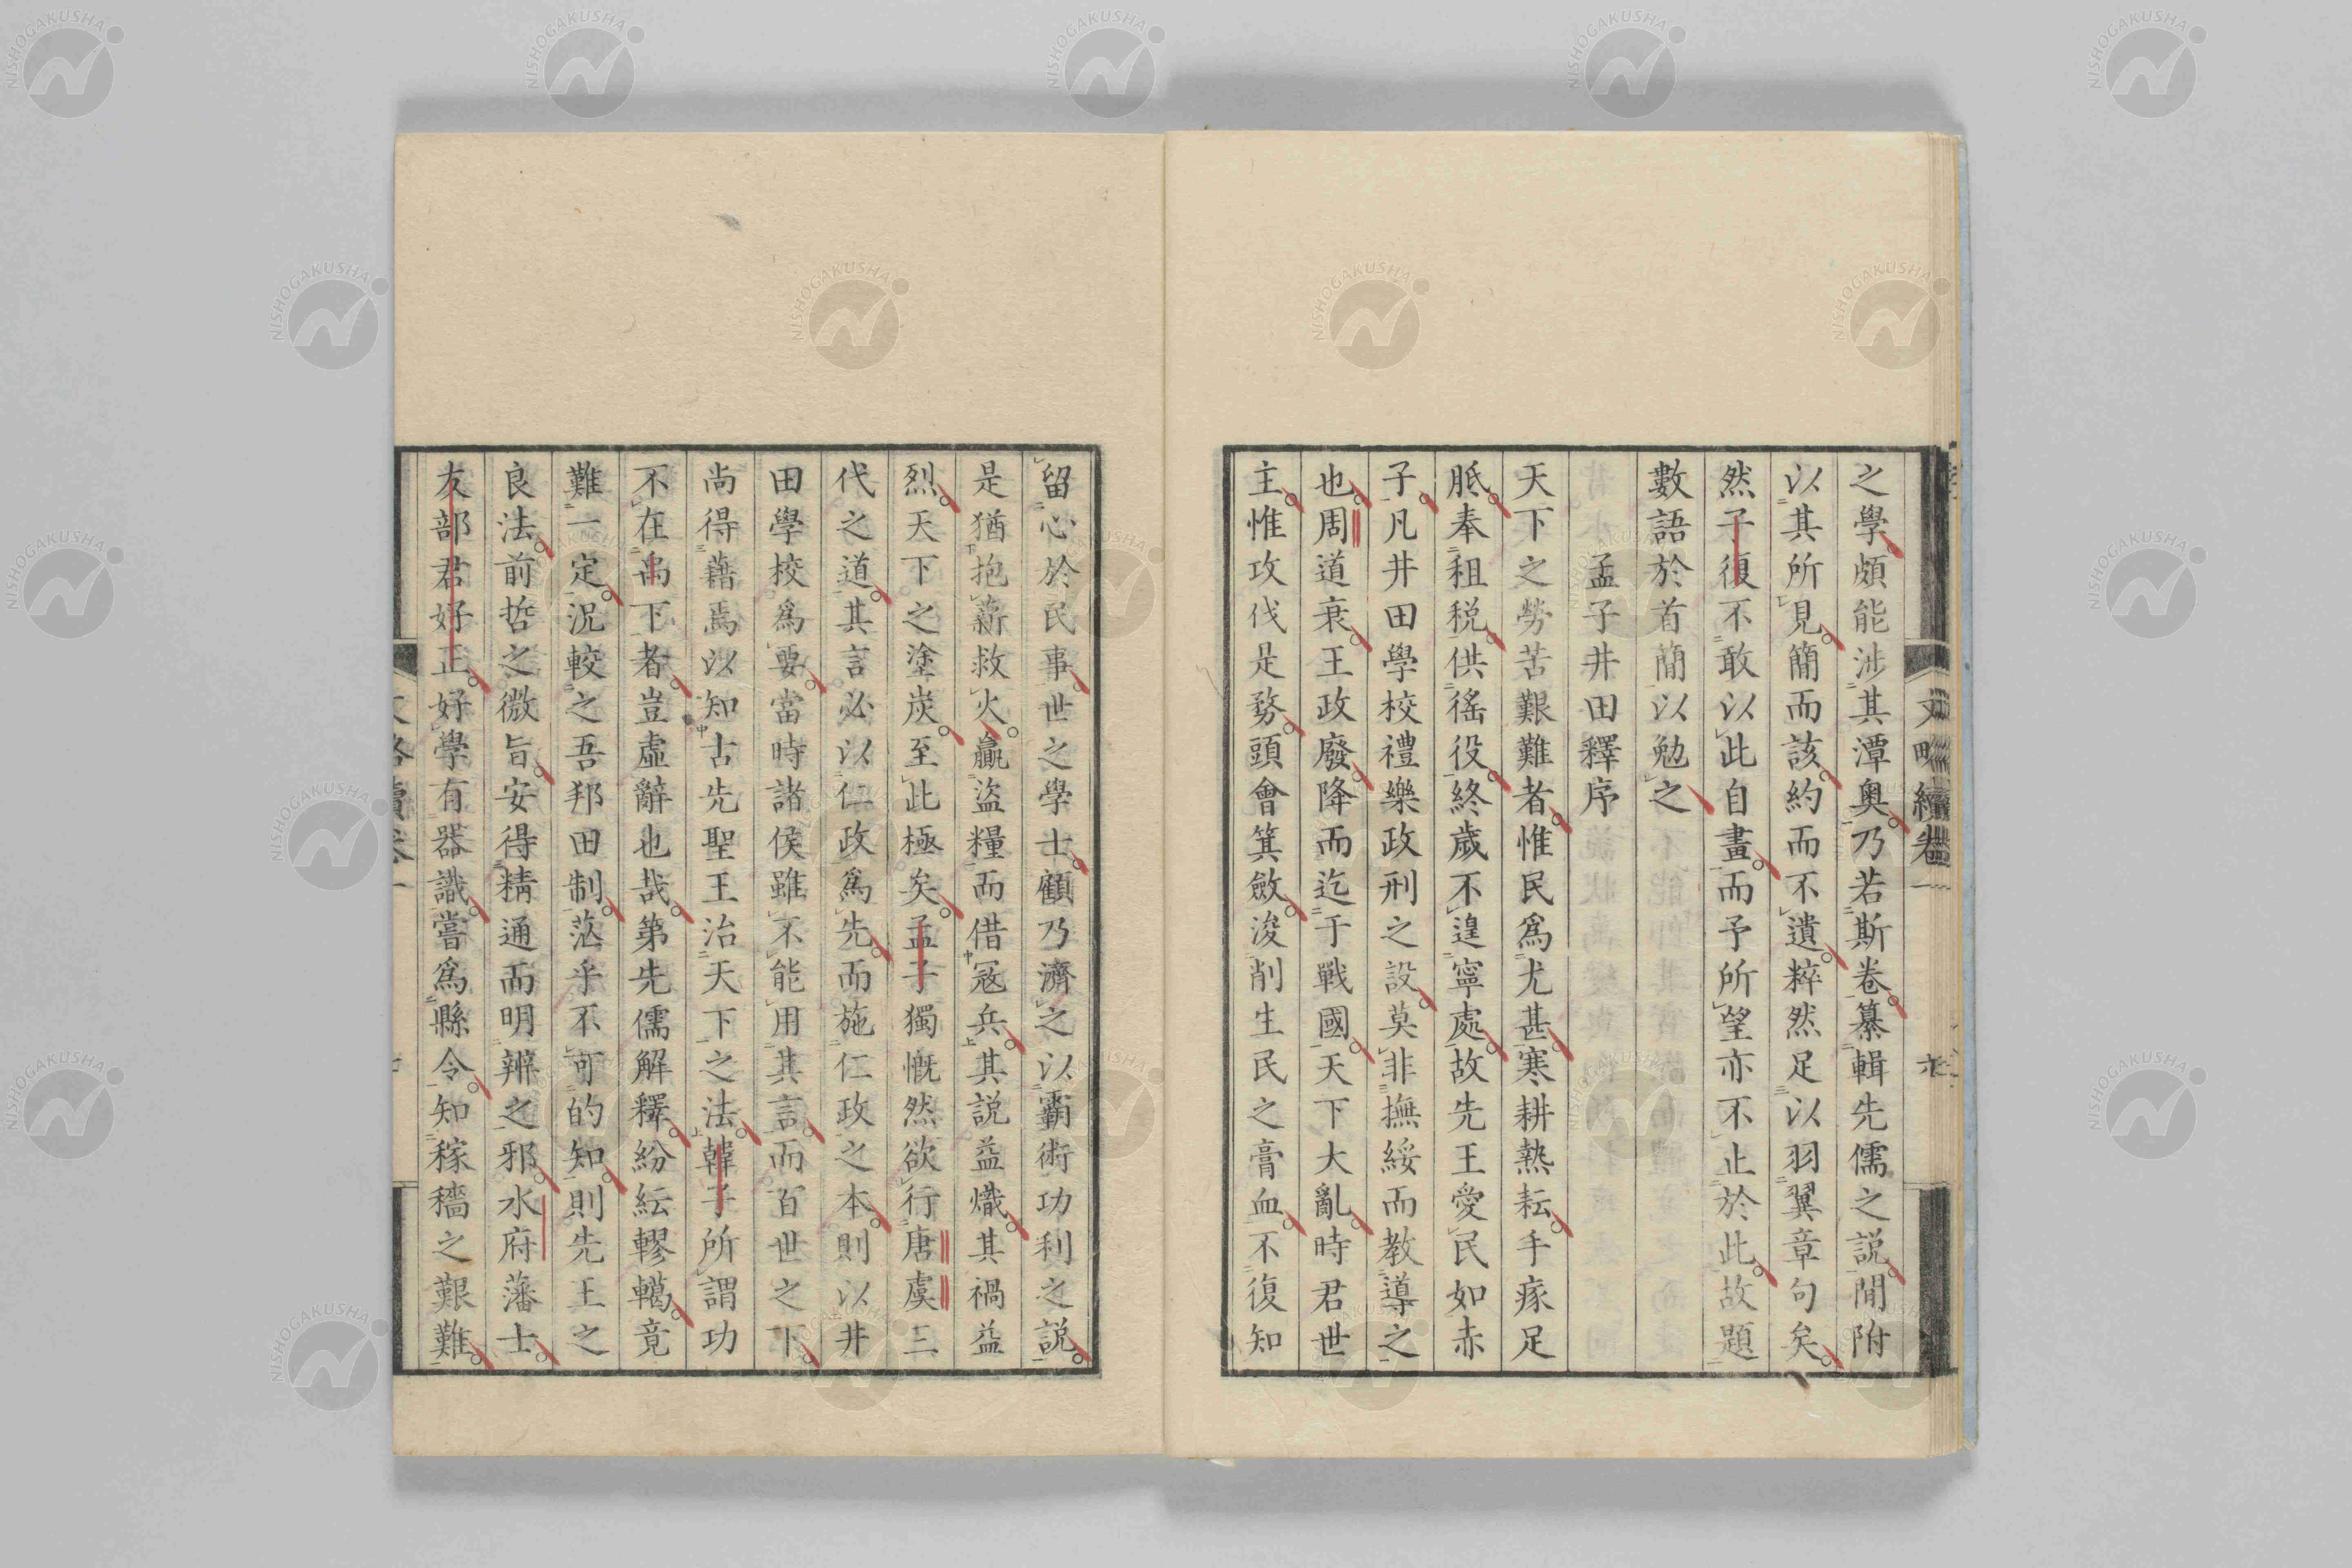 之學頗能涉其潭奥乃若斯卷纂輯先儒之説間附
以其所見簡而該約而不遺粹然足以羽翼章句矣
然子復不敢以此自畫而予所望亦不止於此故題
數語於首簡以勉之
孟子井田釋序
天下之勞苦艱難者惟民爲尤甚寒耕熱耘手瘃足
胝奉租税供徭役終歲不遑寧處故先王愛民如赤
子凡井田學校禮樂政刑之設莫非撫綏而教導之
也周道衰王政廢降而迄于戰國天下大亂時君世
主惟攻伐是務頭會箕斂浚削生民之膏血不復知
留心於民事世之學士顧乃濟之以霸術功利之説
是猶抱薪救火贏盗糧而借寇兵其説益熾其禍益
烈天下之塗炭至此極矣孟子獨慨然欲行唐虞三
代之道其言必以仁政爲先而施仁政之本則以井
田學校爲要當時諸侯雖不能用其言而百世之下
尚得藉焉以知古先聖王治天下之法韓子所謂功
不在禹下者豈虚辭也哉第先儒解釋紛紜轇轕竟
難一定況較之吾邦田制茫乎不可的知則先王之
良法前哲之微旨安得精通而明辨之邪水府藩士
友部君好正好學有器識嘗爲縣令知稼穡之艱難
文略續卷一
六
NISHOGAKUSHA